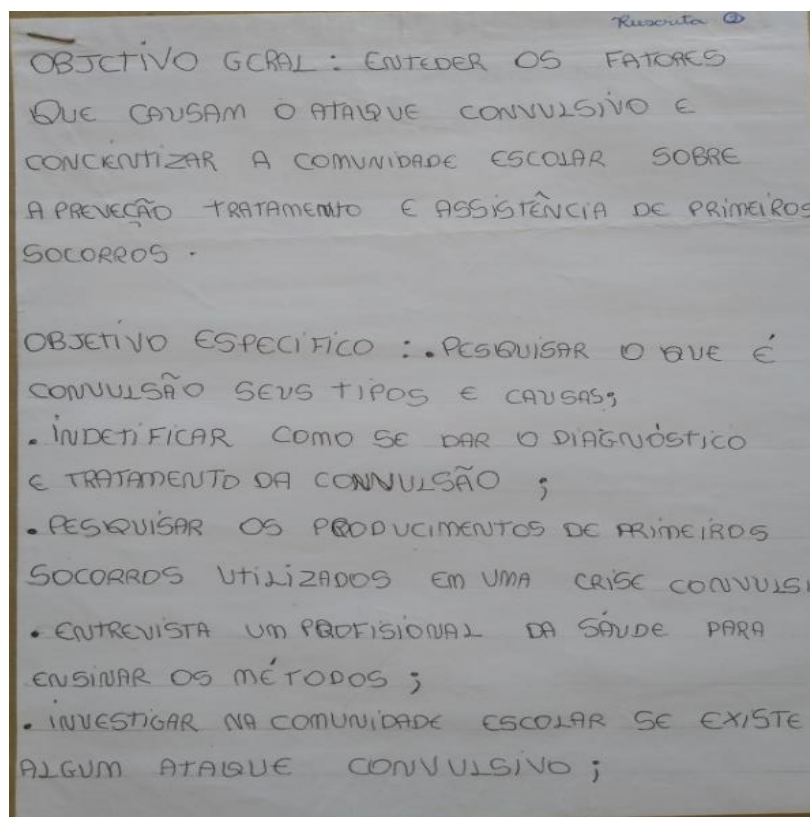 Ruscrita 2
OBJCTIVO GERAL: ENTEDER OS FATORES
QUE CAUSAM O ATAQUE CONVULSIVO E
CONCIENTIZAR A COMUNIDADE ESCOLAR SOBRE
A PREVEÇÃO TRATAMENTO E ASSISTÊNCIA DE PRIMEIROS
SOCORROS.
OBJETIVO ESPECÍFICO: . PESQUISAR O QUE É
CONVULSÃO SEUS TIPOS E CAUSAS;
. INDETIFICAR COMO SE DAR O DIAGNÓSTICO
E TRATAMENTO DA CONVULSÃO ;
. PESQUISAR OS PRODUCIMENTOS DE PRIMEIROS
SOCORROS UTILIZADOS EM UMA CRISE CONVULSI
. ENTREVISTA UM PROFISIONAL DA SAÚDE PARA
ENSINAR OS MÉTODOS ;
. INVESTIGAR NA COMUNIDADE ESCOLAR SE EXISTE
ALGUM ATAQUE CONVULSIVO ;